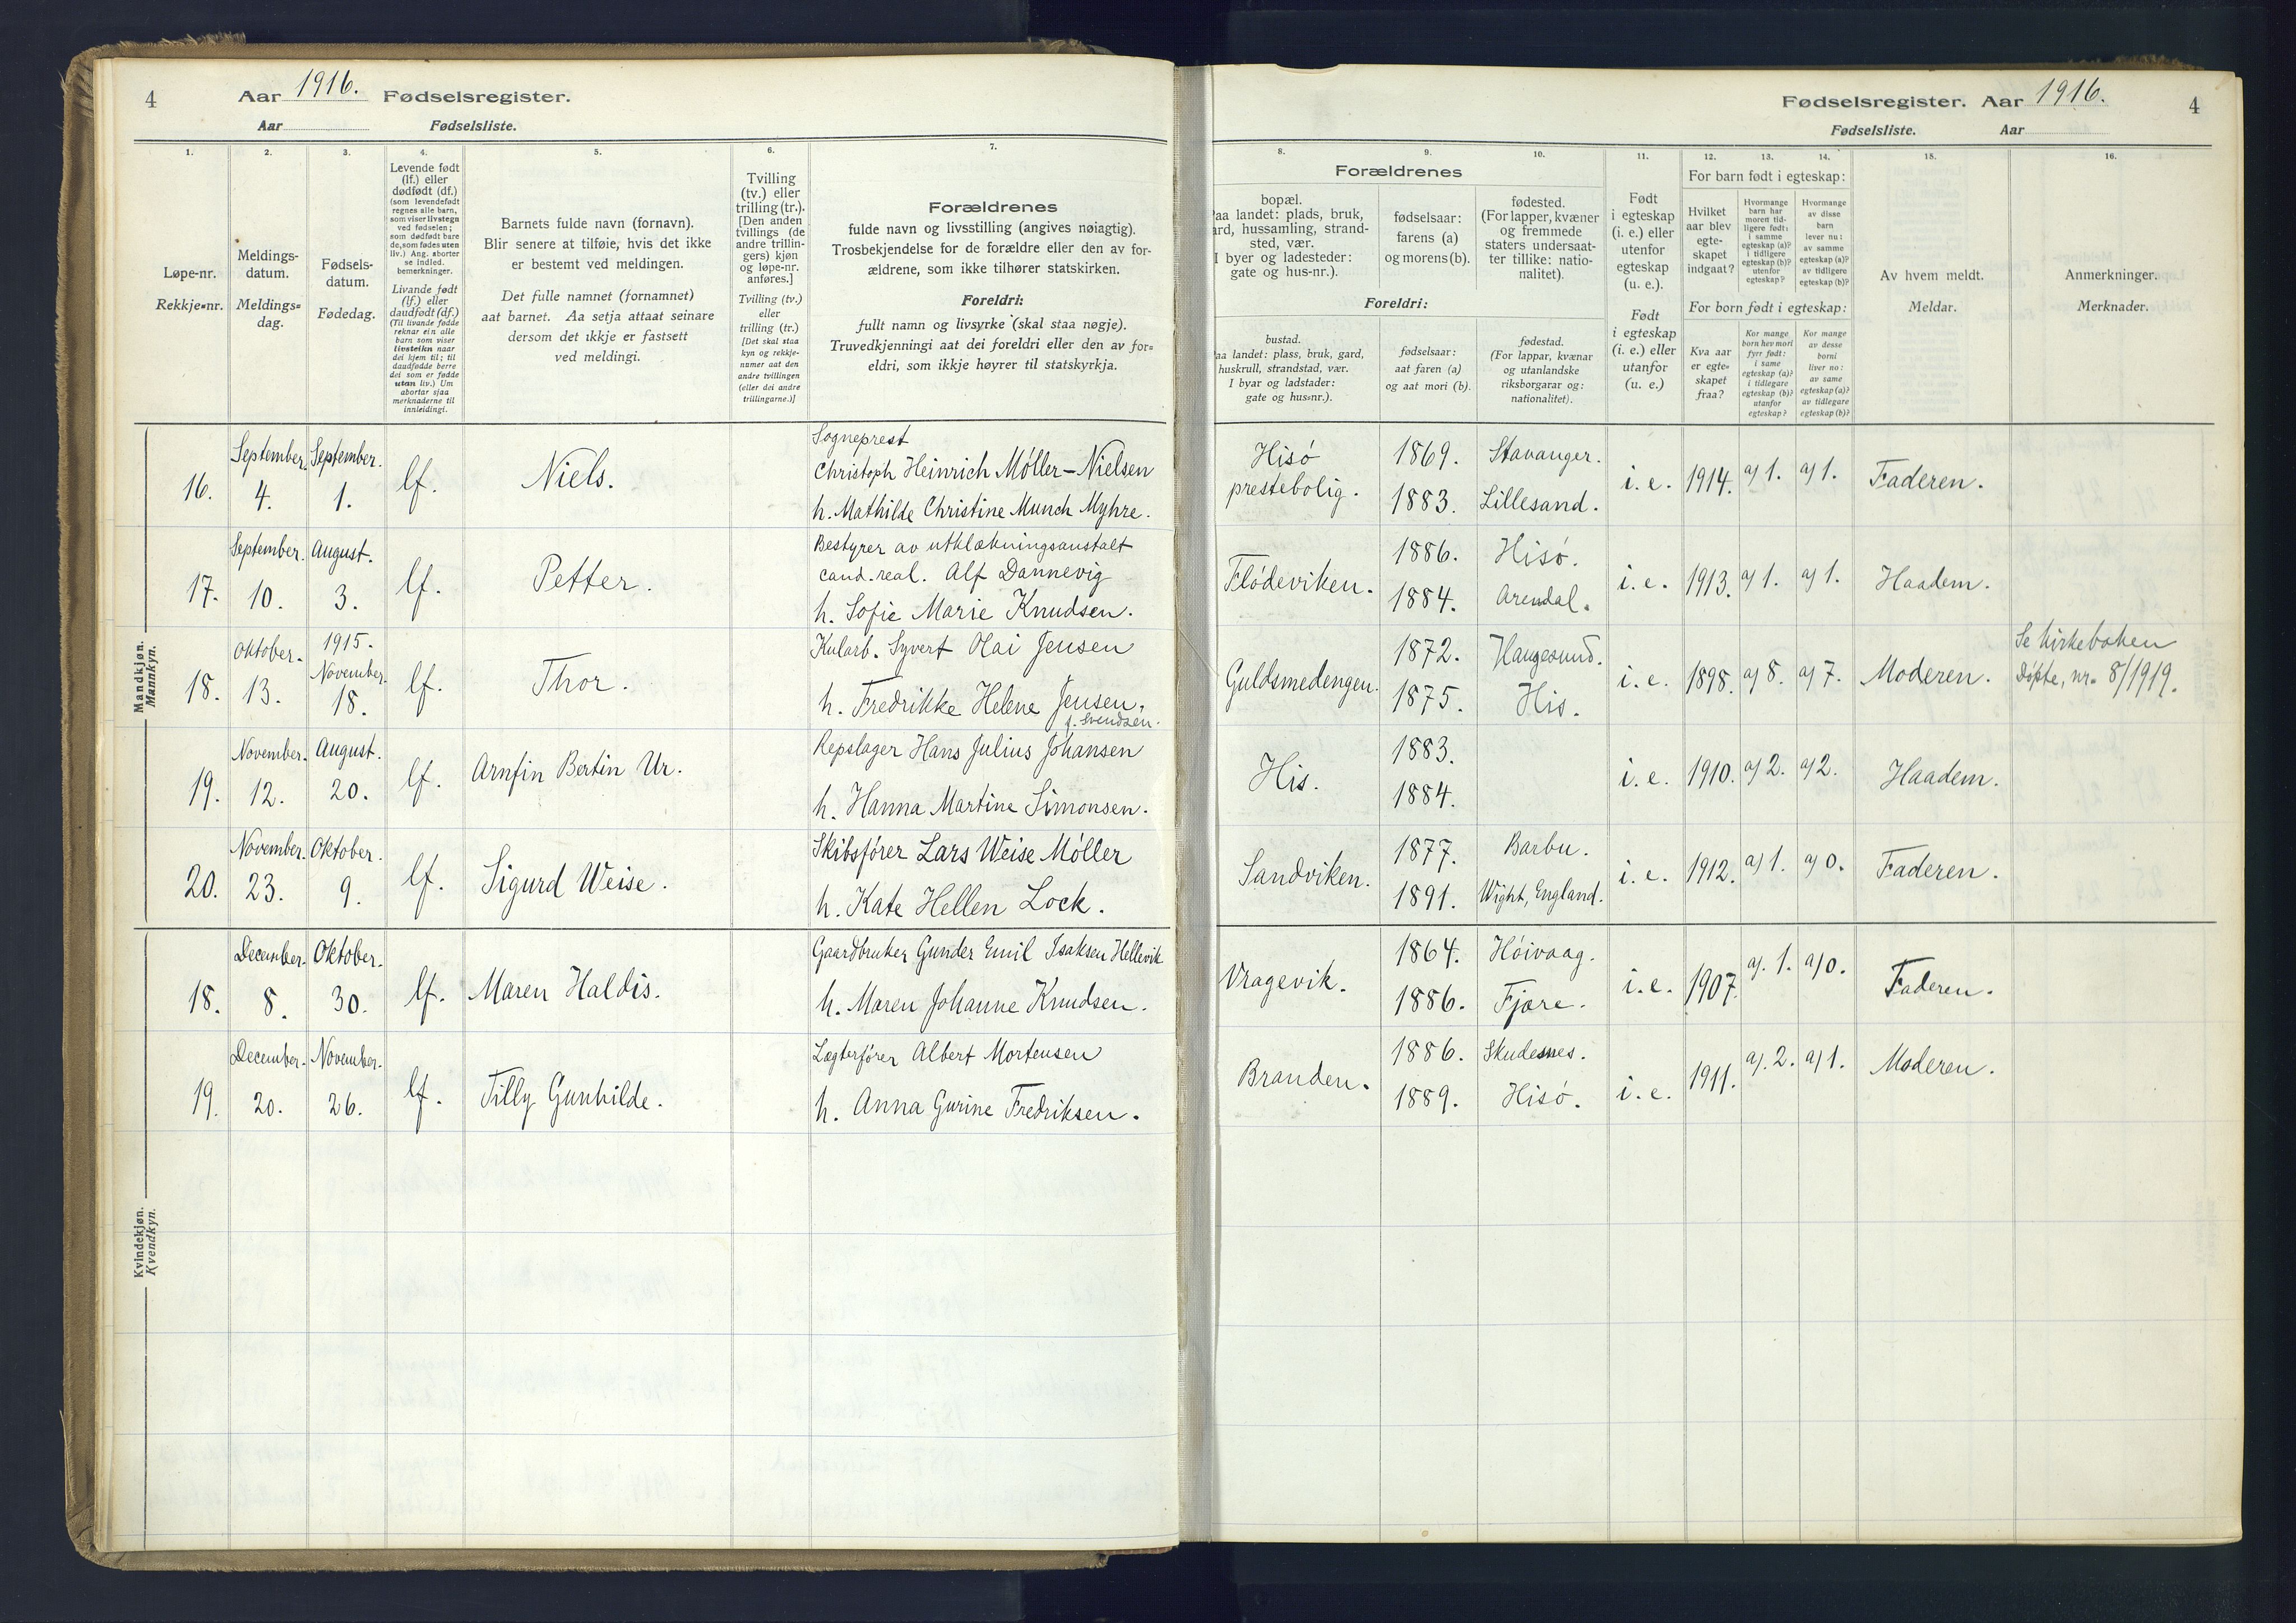 4
Aar 1916. Fødselsregister.
Aar Fødselsliste.
1. 2. 3. 4. 5. 6. 7.
Løpe-nr.
Rekkje=nr.
Meldings-
datum.
Meldings=
dag.
Fødsels-
datum.
Fødedag.
Levende født
(lf.) eller
dødfødt (df.)
(som levendefødt
regnes alle barn,
som viser livstegn
ved fødselen;
som dødfødt bare
de, som fødes uten
liv.) Ang. aborter
se indled.
bemerkninger.
Livande født
(lf.) eller
daudfødt (df.)
(Til livande fødde
reknar ein alle
barn som viser
livsteikn naar
dei kjem til; til
daudfødde berre
dei som er fødde
utan liv.) Um
abortar sjaa
merknaderne til
innleidingi.
Barnets fulde navn (fornavn).
Blir senere at tilføie, hvis det ikke
er bestemt ved meldingen.
Det fulle namnet (fornamnet)
aat barnet. Aa setja attaat seinare
dersom det ikkje er fastsett
ved meldingi.
Tvilling
(tv.) eller
trilling (tr.).
[Den anden
tvillings (de
andre trillin-
gers) kjøn
og løpe-nr.
anføres.]
Tvilling (tv.)
eller
trilling (tr.)
[Det skal staa
kyn og rekkje-
numer aat den
andre tvillingen
(eller dei andre
trillingarne.)]
Forældrenes
fulde navn og livsstilling (angives nøiagtig).
Trosbekjendelse for de forældre eller den av for-
ældrene, som ikke tilhører statskirken.
Foreldri:
fullt namn og livsyrke (skal staa nøgje).
Truvedkjenningi aat dei foreldri eller den av for=
eldri, som ikkje høyrer til statskyrkja.
Mandkjøn.
Mannkyn.
16. September 4. September. 1. lf. Niels.
Sogneprest
Christoph Heinrich Møller-Nielsen
h. Mathilde Christine Munch Myhre.
17. September. 10. August. 3. lf. Petter.
Bestyrer av utklækningsanstalt
cand. real. Alf Dannevig
h. Sofie Marie Knudsen.
18. Oktober. 13. 1915. November. 18. lf. Thor.
Kularb. Syvert Olai Jensen
h. Fredrikke Helene Jensen,
f. Svendsen.
19. November. 12. August. 20. lf. Arnfin Bertin Ur.
Repslager Hans Julius Johansen
h. Hanna Martine Simonsen.
20. November. 23. Oktober. 9. lf. Sigurd Weise.
Skibsfører Lars Weise Møller
h. Kate Hellen Lock.
Kvindekjøn.
Kvendkyn.
18. December. 8. Oktober. 30. lf. Maren Haldis.
Gaardbruker Gunder Emil Isaksen Hellevik
h. Maren Johanne Knudsen.
19. December. 20. November. 26. lf. Tilly Gunhilde.
Lægterfører Albert Mortensen
h. Anna Gurine Fredriksen.
Fødselsregister. Aar 1916. 4
Fødselsliste. Aar
8. 9. 10. 11. 12. 13. 14. 15. 16.
Forældrenes
bopæl.
aa landet: plads, bruk,
rd, hussamling, strand-
sted, vær.
I byer og ladesteder:
gate og hus-nr.).
fødselsaar:
farens (a)
og morens (b).
fødested.
(For lapper, kvæner
og fremmede
staters undersaat-
ter tillike: natio-
nalitet).
Foreldri:
bustad.
aa landet: plass, bruk, gard,
huskrull, strandstad, vær.
I byar og ladstader:
gate og hus=nr.).
fødselsaar:
aat faren (a)
og aat mori (b).
fødestad.
(For lappar, kvænar
og utanlandske
riksborgarar og:
nationalitet).
Født
i egteskap
(i. e.) eller
utenfor
egteskap
(u. e.).
Født
i egteskap
(i. e.) eller
utanfor
(u. e.)
For barn født i egteskap:
Hvilket
aar blev
egte-
skapet
indgaat?
Hvormange
barn har
moren tid-
ligere født:
i samme
egteskap (a)?
i tidligere
egteskap (b)?
utenfor
egteskap?
Hvormange
av disse
barn
lever nu:
av samme
egteskap (a)?
av tidligere
egteskap (b)?
For born født i egteskap:
Kva aar
er egte=
skapet
fraa?
Kor mange
born hev mori
fyrr født:
i same
egteskap (a)?
i tidlegare
egteskap (b)?
utanfor
egteskap?
Kor mange
av desse
borni
liver no:
av same
egteskap (a)?
av tidlegare
egteskap (b)?
Av hvem meldt.
Meldar.
Anmerkninger.
Merknader.
Hisø
prestebolig.
1869. Stavanger.
1883. Lillesand.
i. e. 1914. a) 1. a) 1. Faderen.
Flødeviken.
1886. Hisø.
1884. Arendal.
i. e. 1913. a) 1. a) 1. Haadem.
Guldsmedengen.
1872. Haugesund.
1875. His.
i. e. 1898. a) 8. a) 7. Moderen.
Se kirkeboken
Døpte, nr. 8/1919.
His.
1883.
1884.
i. e. 1910. a) 2. a) 2. Haadem.
Sandviken.
1877. Barbu.
1891. Wight, England.
i. e. 1912. a) 1. a) 0. Faderen.
Vragevik.
1864. Høivaag.
1886. Fjære.
i. e. 1907. a). 1. a) 0. Faderen.
Branden.
1886. Skudesnes.
1889. Hisø.
i. e. 1911. a). 2. a) 1. Moderen.